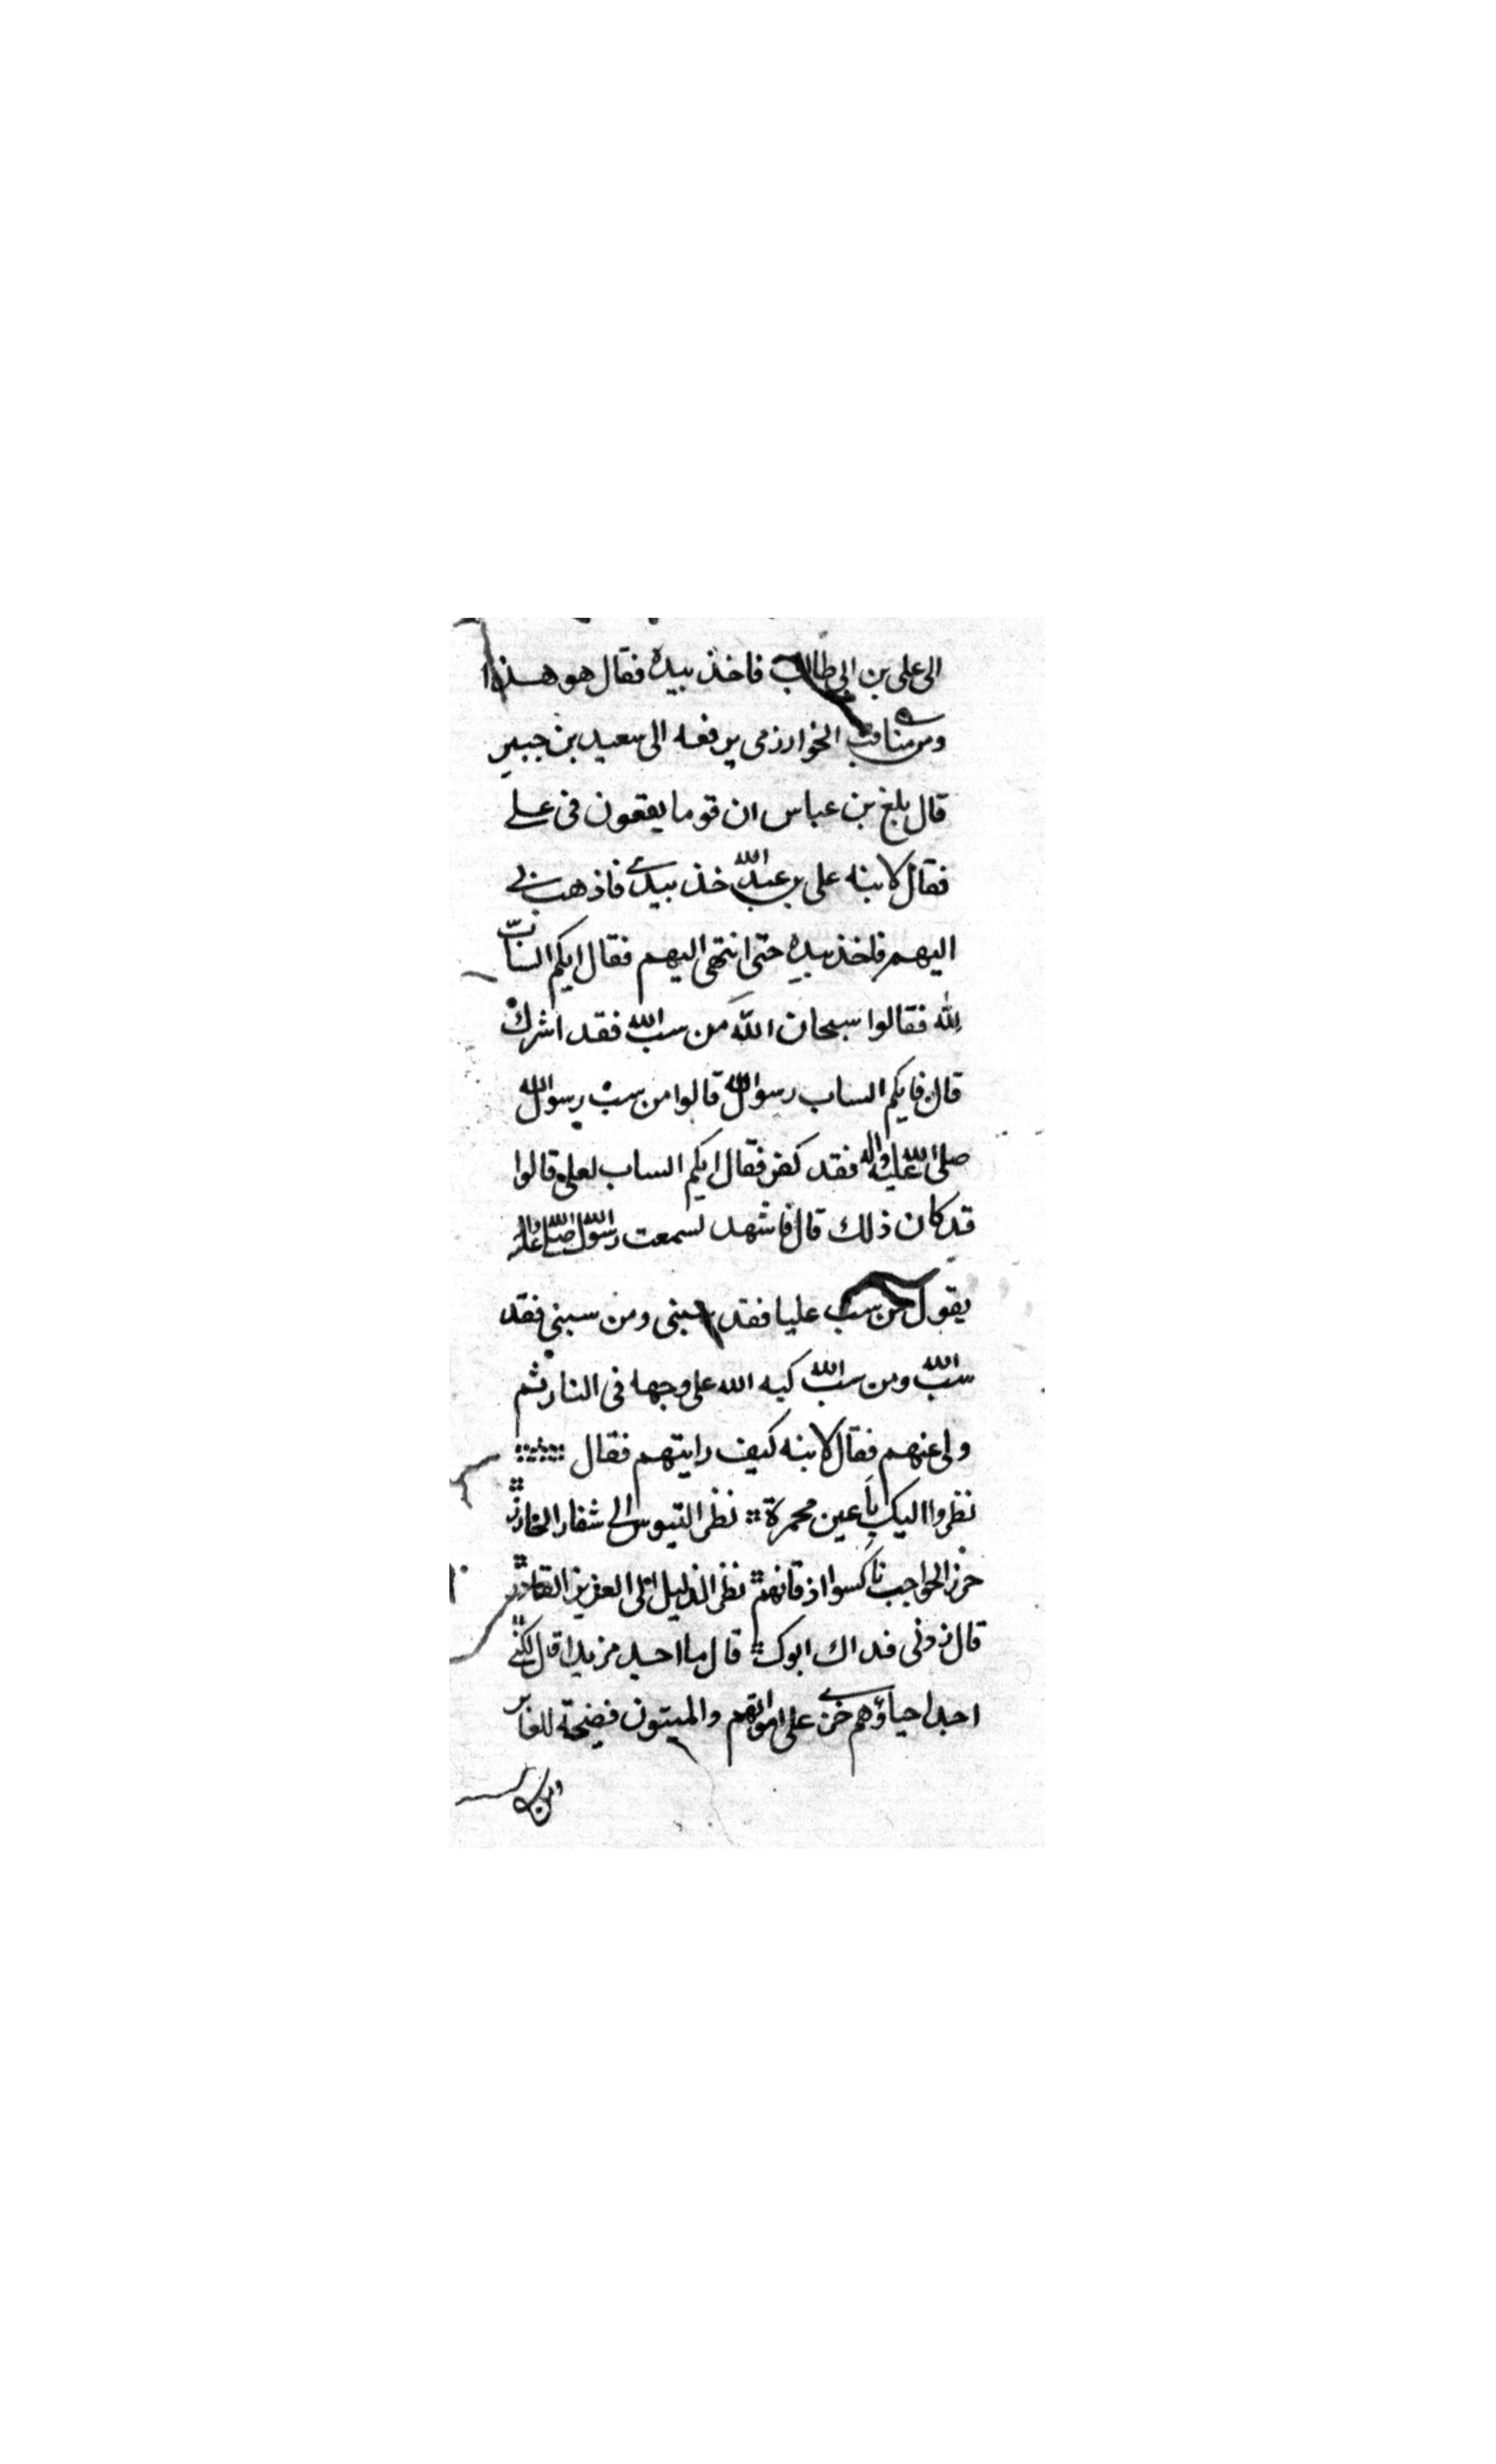 الى على بن ابى طالب فاخذ بيده فقال هو هذا
ومن مناقب الخوارزمى يرفعه الى سعيد بن جبير
قال بلغ بن عباس ان قوما يقعون فى على
فقال لابنه على بن عبد الله خذ بيدى فاذهب بى
اليهم فاخذ بيده حتى انتهى اليهم فقال ايكم الساب
لله فقالوا سبحان الله من سب الله فقد اشرك
قال فايكم الساب رسول الله قالوا من سب رسول الله
صلى الله عليه واله فقد كفر فقال ايكم الساب لعلى قالوا
قد كان ذلك قال فاشهد لسمعت رسول الله صلى الله عليه واله
يقول من سب عليا فقد سبنى ومن سبنى فقد
سب الله ومن سب الله كبه الله على وجهه فى النار ثم
ولى عنهم فقال لابنه كيف رايتهم فقال
نظروا اليك باعين محمرة نظر التيوس الى شفار الجازر
خزر الحواجب ناكسوا اذقانهم نظر الذليل الى العزيز القادر
قال زدنى فداك ابوك قال ما اجد مزيدا قال لكنى
اجد احياؤهم خزى على امواتهم والميتون فضيحة للغابر